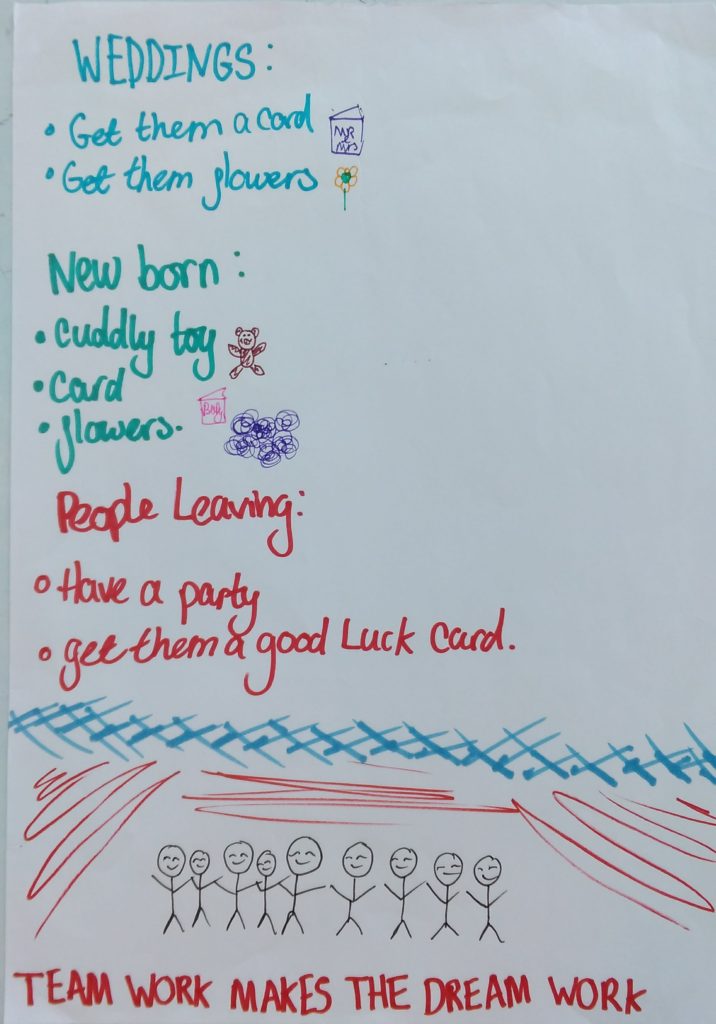 WEDDINGS:
• Get them a card
MR & MRS
• Get them flowers
New born:
• cuddly toy
• card
Baby
• flowers.
People Leaving:
• Have a party
• get them a good Luck card.
TEAM WORK MAKES THE DREAM WORK